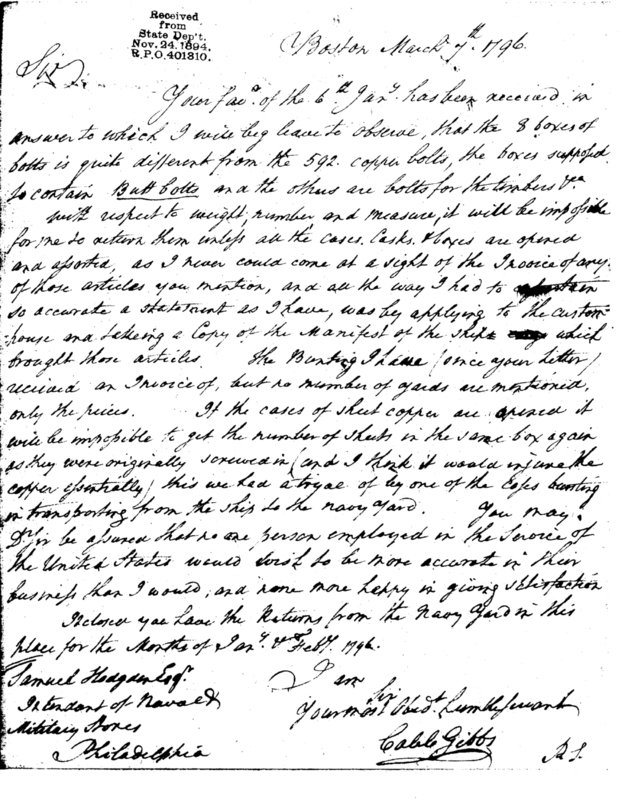 Received
from
State Dep't.
Nov. 24. 1894.
R.P.O. 401310.
Boston March 7th. 1796.
Sir,
Your favr. of the 6th Jany. has been received in
answer to which I will beg leave to observe, that the 8 boxes of
bolts is quite different from the 592. copper bolts, the boxes supposed
to contain Butt bolts and the others are bolts for the timbers &ca
With respect to weight, number and measure, it will be impossible
for me to return them unless all the Cases. Casks. & boxes are opened
and assorted, as I never could come at a sight of the Invoice of any
of those articles you mention, and all the way I had to
so accurate a statement as I have, was by applying to the Custom
house and takeing a Copy of the Manifest of the ships which
brought those articles. The Bunting I have (since your letter)
received an Invoice of, but no number of yards are mentioned,
only the peices. If the cases of sheet copper are opened it
will be impossible to get the number of sheets in the same box again
as they were originally screwed in (and I think it would injure the
copper essentially) this we had a tryal of by one of the Cases bursting
in transporting from the ship to the navy yard. You may,
Dr. Sir be assured that no one person employed in the Service of
the United States would wish to be more accurate in their
business than I would, and none more happy in giving satisfaction
Inclosed you have the Returns from the Navy Yard in this
place for the Months of Jany. & Feby. 1796.
Samuel Hodgdon Esqr.
Intendant of Naval &
Military Stores
Philadelphia
I am
Sir
Your most Obedt. Humble Servant
Caleb Gibbs